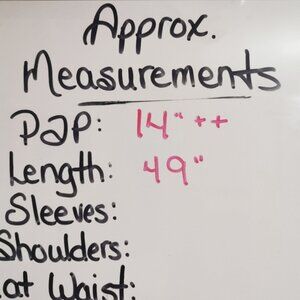 Approx.
Measurements
P2P: 14" ++
Length: 49"
Sleeves:
Shoulders:
at Waist: